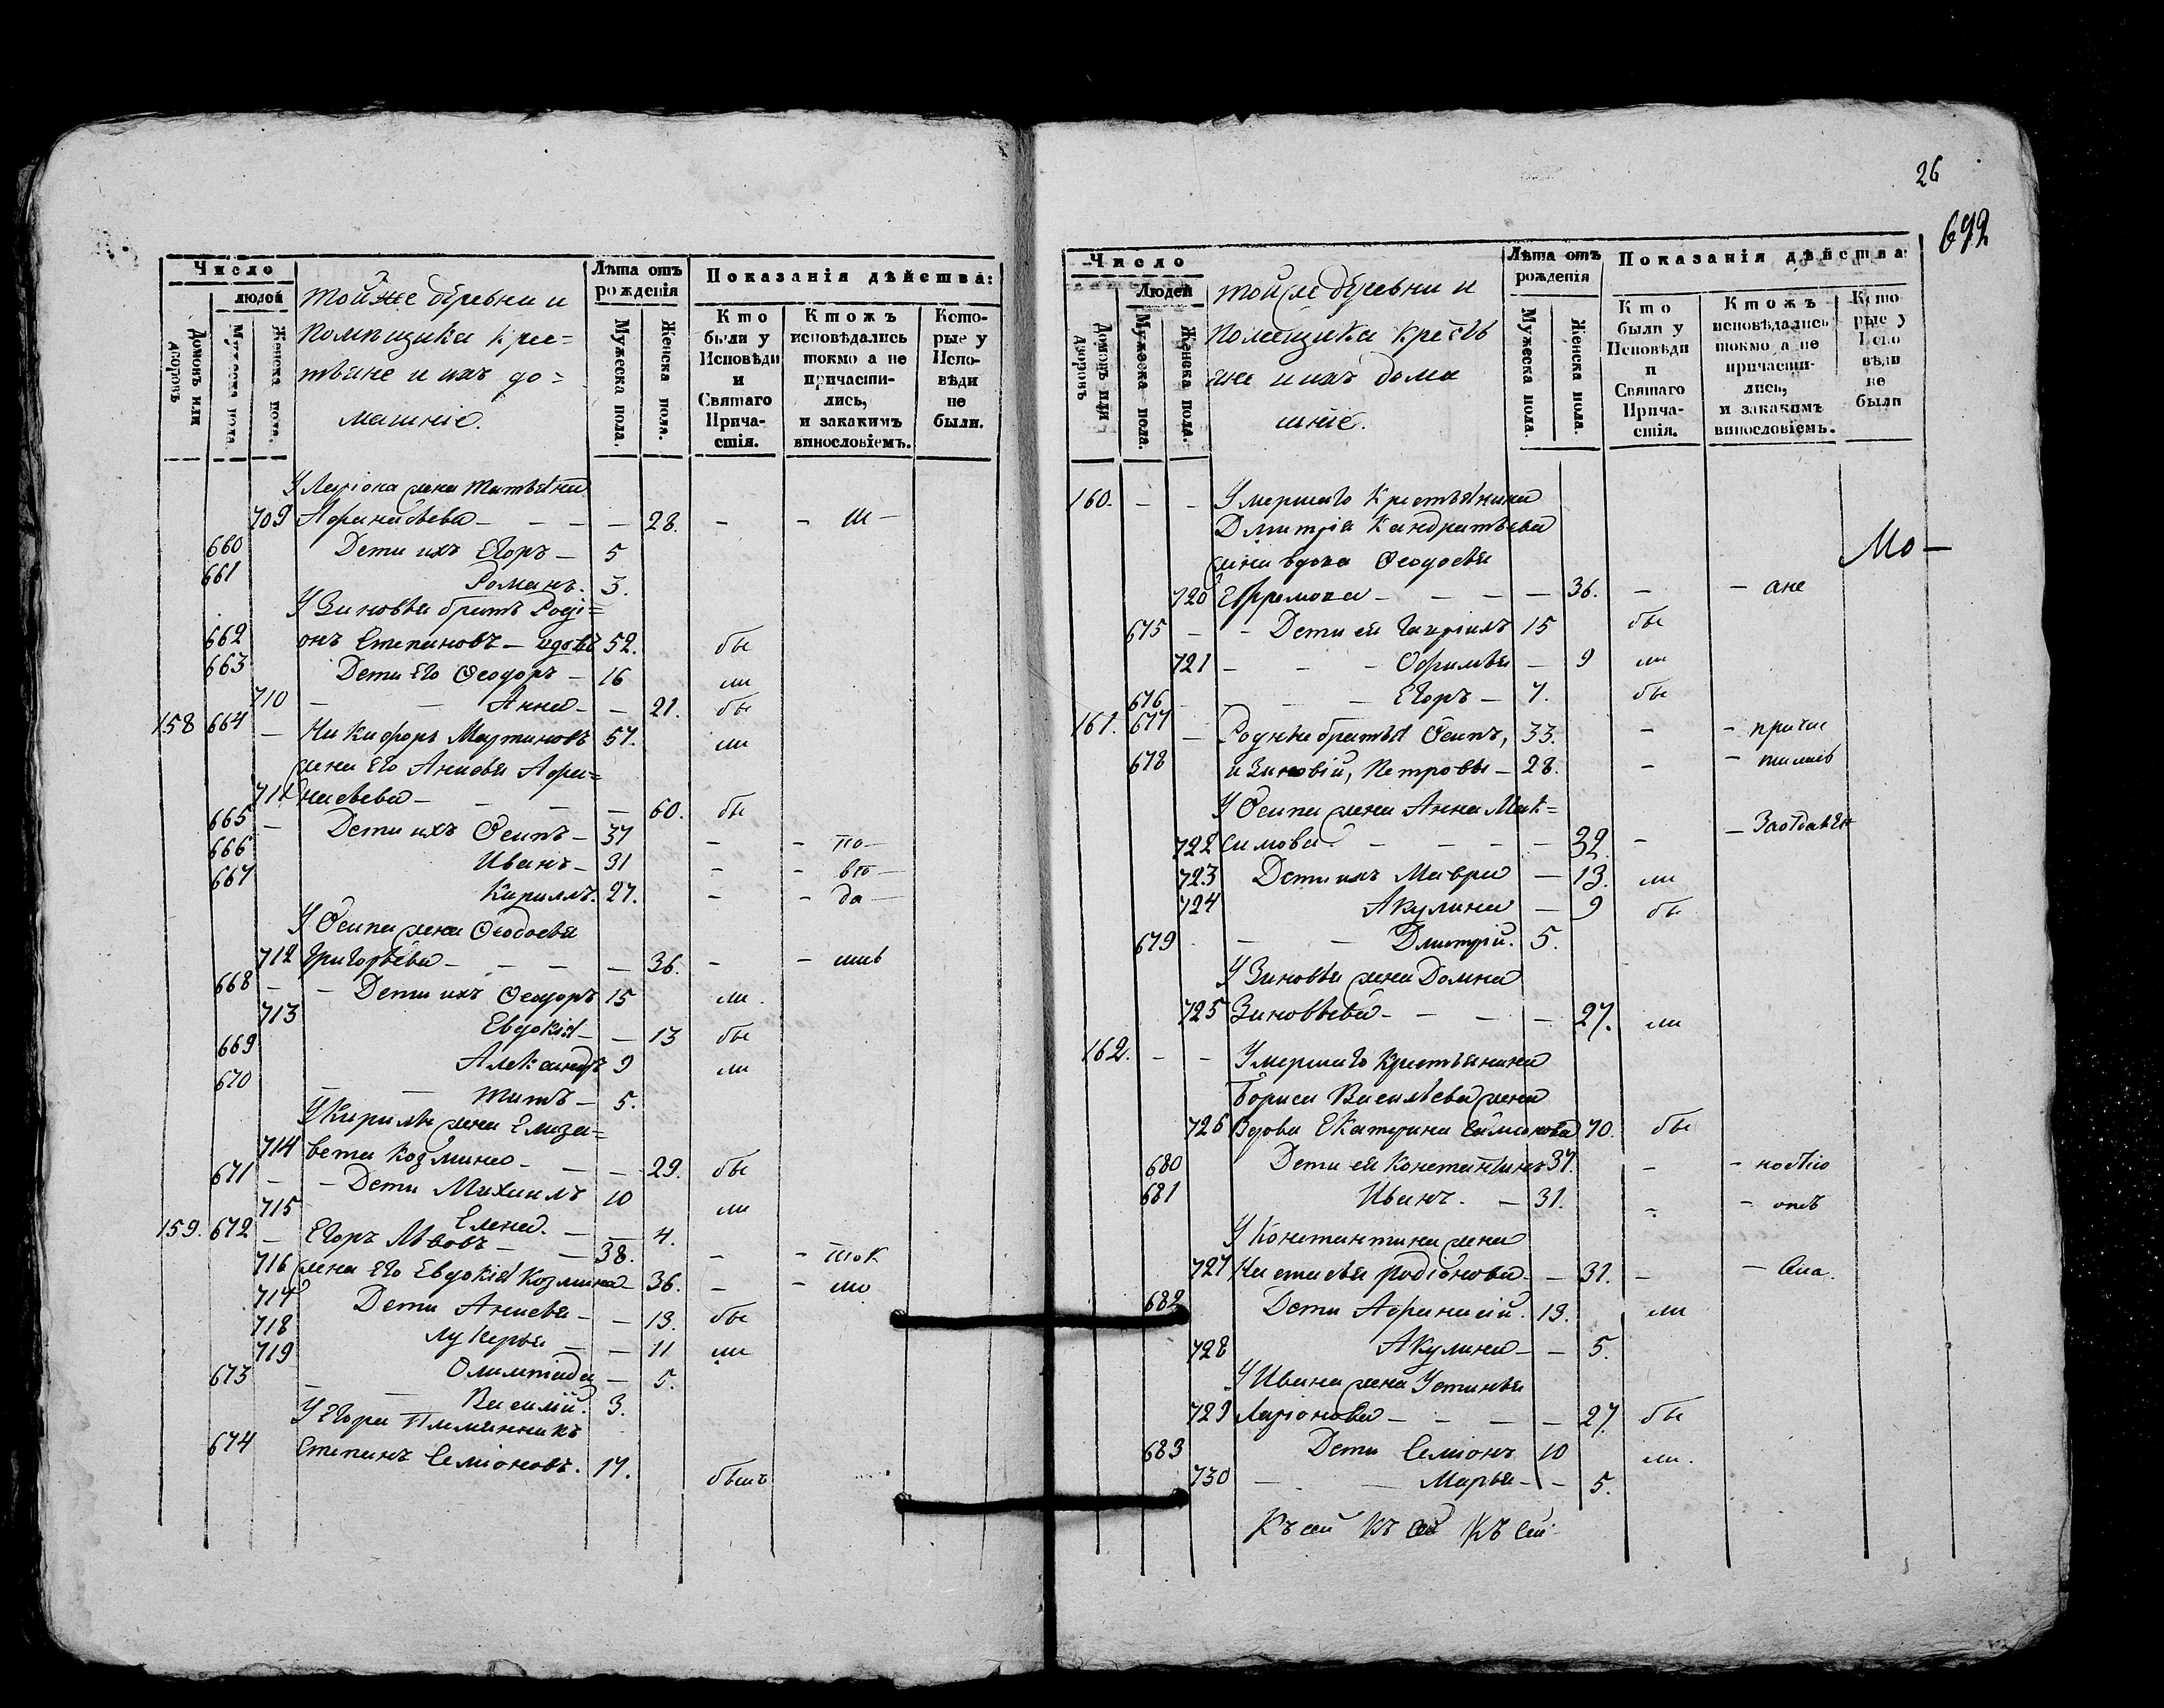 Число
людей
Домовъ или дворовъ
Мужеска пола.
Женска пола.
тойже деревни и
помѣщика крес=
тьяне и ихъ до=
машніе.
Лѣта отъ рожденія
Мужеска пола.
Женска пола.
Показанія дѣйства:
Кто были у Исповѣди и Святаго Причастія.
Ктожъ исповѣдались токмо а не причастились, и закакимъ винословіемъ.
Которые у Исповѣди не были.
У Ларіона жена Татьяна
709 Афанасьева — — — — 28. — — Ш —
660 Дети ихъ Егоръ — 5
661 Романъ. 3.
У Зиновья братъ Роді=
662 онъ Степановъ — вдовъ 52. бы
663 Дети Его Ѳеодоръ — 16 ли
710 — — Анна — — 21. бы
158 664 — Никифоръ Мартиновъ 57. ли
жена Его Анисья Афа=
711 насьева — — — — 60. бы
665 — Дети ихъ Осипъ — 37 — — по —
666 Иванъ — 31 — — вто —
667 Кирилъ. 27. — — да —
У Осипа жена Ѳеодосья
712 Григорьева — — — — 36. — — шив
668 — — Дети ихъ Ѳеодоръ 15 ли.
713 Евдокія — — 13 бы
669 Александръ 9 ли
670 — — Титъ — 5.
У Кирилы жена Елиза=
714 вета Козмина — — — 29. бы
671 — — Дети Михаилъ 10
715 Елена. — — 4. ли
159. 672 — Егоръ Львовъ — — 38. — — ток
716 жена Его Евдокія Козмина — 36. — — мо
717 Дети Анисья — — 13. бы
718 Лукерья — — 11 ли
719 Олимпіада — 5.
673 — — Василій. 3.
У Егора Племянникъ
674 Степанъ Семіоновъ. 17. былъ
26
692
Число
Людей
Домовъ или дворовъ
Мужеска пола.
Женска пола.
тойже деревни и
помещика кресть
яне и ихъ дома
шніе.
Лѣта отъ рожденія
Мужеска пола.
Женска пола.
Показанія дѣйства:
Кто были у Исповѣди и Святаго Причастія.
Ктожъ исповѣдались токмо а не причастились, и закакимъ винословіемъ.
Которые у Исповѣди не были
160. — — Умершаго Крестьянина
Дмитрія Кандратьева
жена вдова Ѳеодосья
Мо —
720 Ефремова — — — — 36. — — ане
675 — — Дети ея Гаврилъ 15 бы
721 — — — Офимья — 9 ли
676 — — — Егоръ — 7. бы
161. 677 — Родные братья Осипъ, 33. — — причас
678 и Зиновій, Петровы — 28. — — тились
У Осипа жена Анна Мак=
722 симова. — — — — 32. —
723 Дети ихъ Мавра — 13. ли
724 Акулина — 9 бы
679 — — Дмитрій. 5.
У Зиновья жена Домна
725 Зиновьева — — — — 27. ли
162. — — Умершаго Крестьянина
Бориса Васильева жена
726 Вдова Екатерина Симонова 70. бы
680 Дети ея Константинъ 37. —
681 Иванъ. — 31. —
У Константина жена
727 Настасья Родіонова — — 31. —
682 Дети Афанасій. 13. ли
728 Акулина — — 5.
У Ивана жена Устинья
729 Ларіонова — — — — 27. бы
683 Дети Семіонъ 10 ли.
730 — — Марья — — 5.
Къ сей Къ сей Къ сей